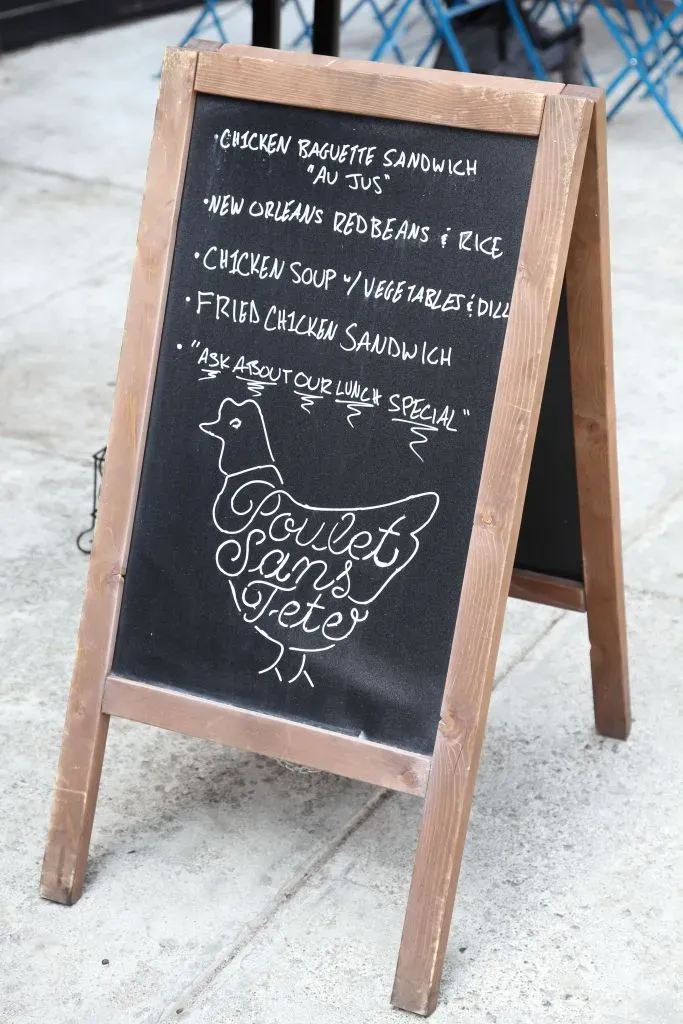 •CHICKEN BAGUETTE SANDWICH
"AU JUS"
•NEW ORLEANS RED BEANS & RICE
•CHICKEN SOUP W/ VEGETABLES & DILL
•FRIED CHICKEN SANDWICH
•"ASK ABOUT OUR LUNCH SPECIAL"
Poulet
Sans
Tete